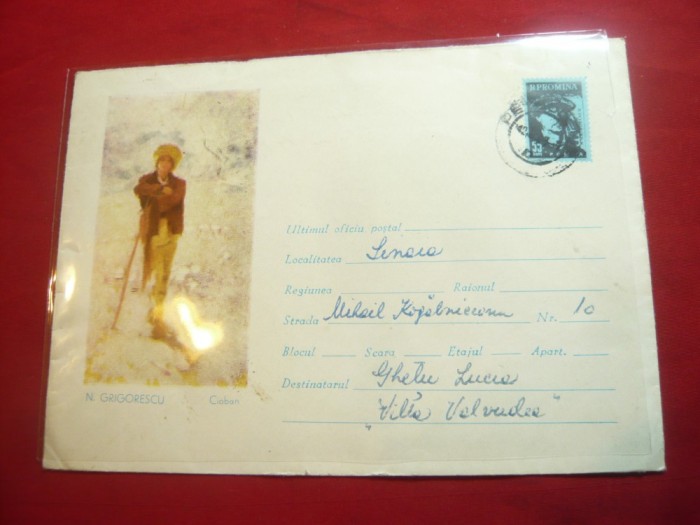 R.P.ROMINA
55
Ultimul oficiu poștal
Localitatea Senaia
Regiunea Raionul
Strada Mihail Kogălniceanu Nr. 10
Blocul Scara Etajul Apart.
Destinatarul Ghelu Lucia
"Villa Valvudea"
N. GRIGORESCU Cioban